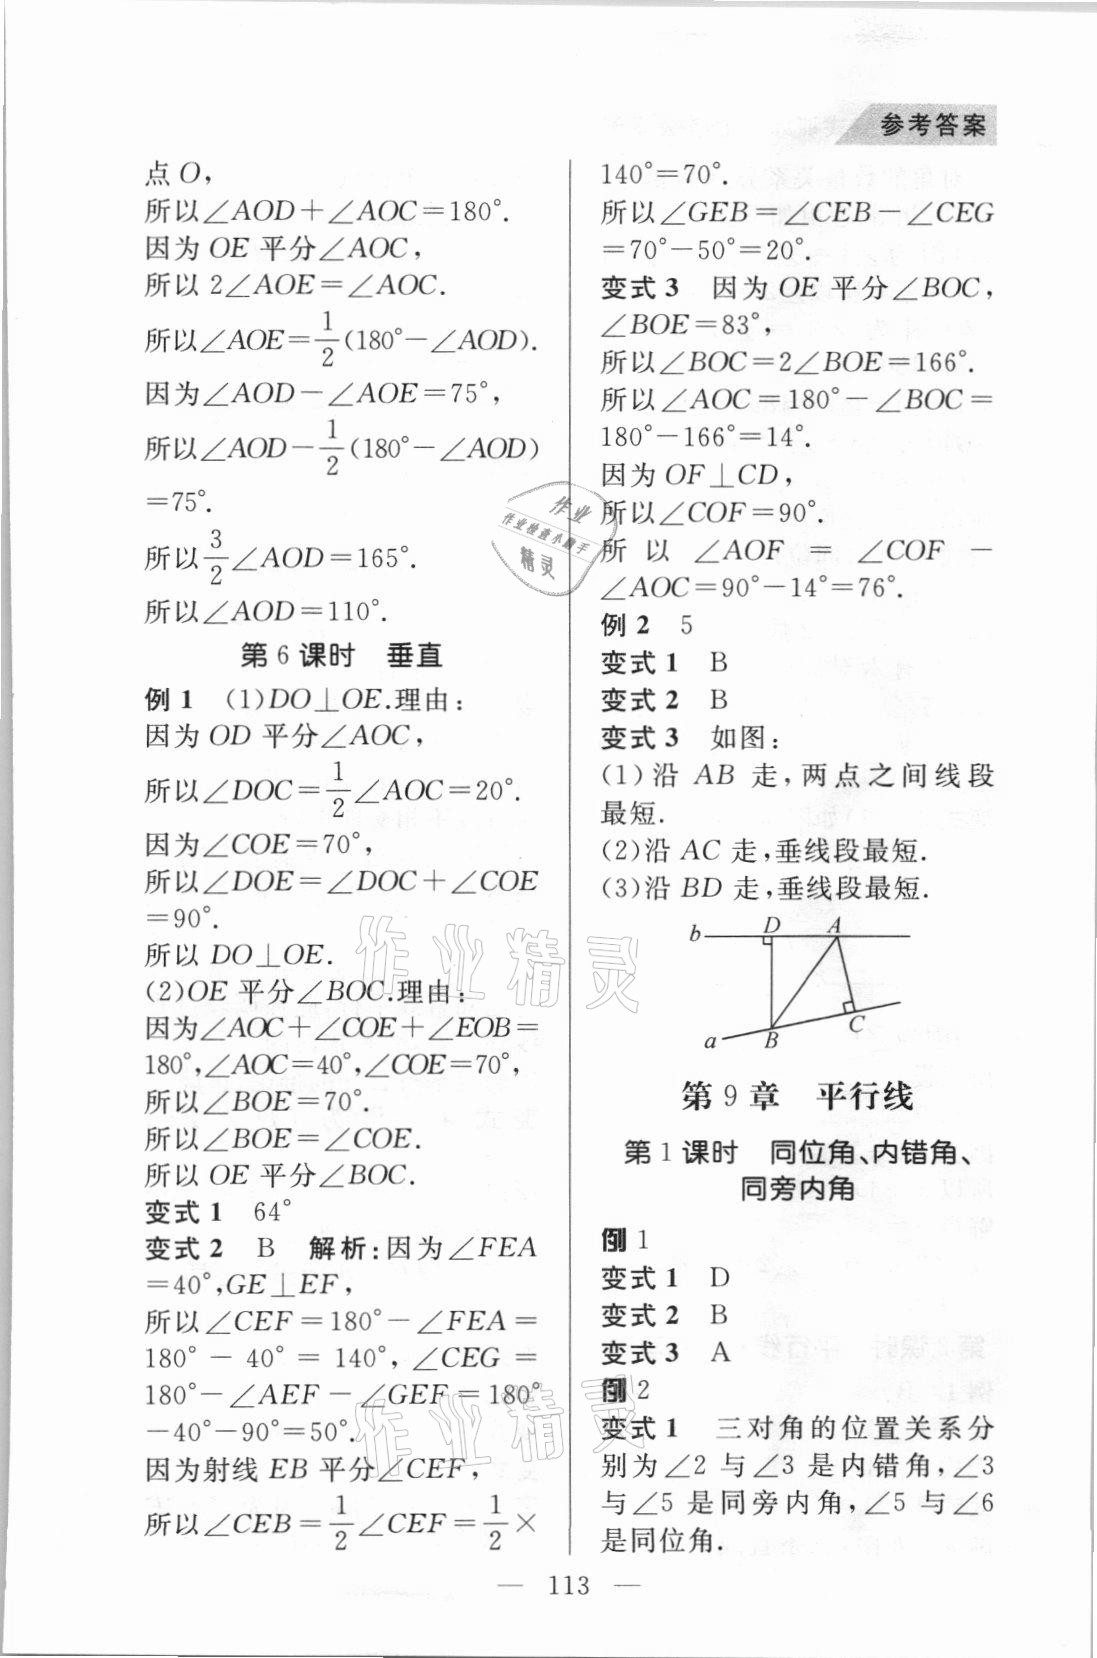 参考答案
点 O，
所以∠AOD＋∠AOC＝180°.
因为 OE 平分∠AOC，
所以 2∠AOE＝∠AOC.
所以∠AOE＝1/2(180°－∠AOD).
因为∠AOD－∠AOE＝75°，
所以∠AOD－1/2(180°－∠AOD)
＝75°.
所以3/2∠AOD＝165°.
所以∠AOD＝110°.
第 6 课时　垂直
例 1　(1)DO⊥OE.理由：
因为 OD 平分∠AOC，
所以∠DOC＝1/2∠AOC＝20°.
因为∠COE＝70°，
所以∠DOE＝∠DOC＋∠COE
＝90°.
所以 DO⊥OE.
(2)OE 平分∠BOC.理由：
因为∠AOC＋∠COE＋∠EOB＝
180°，∠AOC＝40°，∠COE＝70°，
所以∠BOE＝70°.
所以∠BOE＝∠COE.
所以 OE 平分∠BOC.
变式 1　64°
变式 2　B　解析：因为∠FEA
＝40°，GE⊥EF，
所以∠CEF＝180°－∠FEA＝
180°－40°＝140°，∠CEG＝
180°－∠AEF－∠GEF＝180°
－40°－90°＝50°.
因为射线 EB 平分∠CEF，
所以∠CEB＝1/2∠CEF＝1/2×
140°＝70°.
所以∠GEB＝∠CEB－∠CEG
＝70°－50°＝20°.
变式 3　因为 OE 平分∠BOC，
∠BOE＝83°，
所以∠BOC＝2∠BOE＝166°.
所以∠AOC＝180°－∠BOC＝
180°－166°＝14°.
因为 OF⊥CD，
所以∠COF＝90°.
所以∠AOF＝∠COF－
∠AOC＝90°－14°＝76°.
例 2　5
变式 1　B
变式 2　B
变式 3　如图：
(1)沿 AB 走，两点之间线段
最短.
(2)沿 AC 走，垂线段最短.
(3)沿 BD 走，垂线段最短.
b D A
a B C
第 9 章　平行线
第 1 课时　同位角、内错角、
同旁内角
例 1
变式 1　D
变式 2　B
变式 3　A
例 2
变式 1　三对角的位置关系分
别为∠2 与∠3 是内错角，∠3
与∠5 是同旁内角，∠5 与∠6
是同位角.
— 113 —
作业
作业检查小助手
精灵
作业精灵
作业精灵